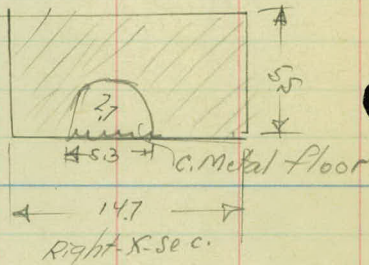 5.5
2.7
5.3
C. Metal floor
14.7
Right-X-sec.